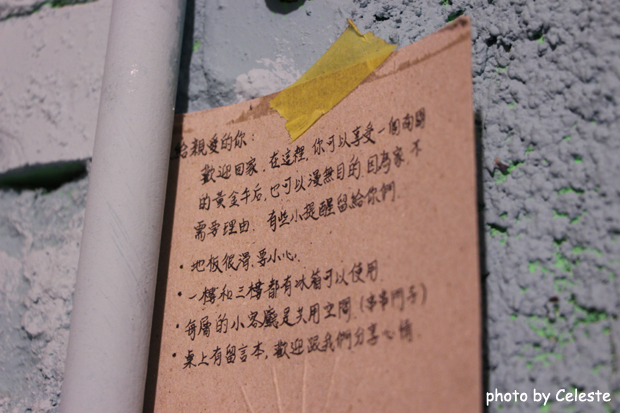 給親愛的你:
歡迎回家，在這裡，你可以享受一個南國
的黃金午后，也可以漫無目的，因為家，不
需要理由，有些小提醒留給你們.
• 地板很滑，要小心.
• 一樓和三樓都有冰箱可以使用
• 每層的小客廳是共用空間.(串串門子)
• 桌上有留言本，歡迎跟我們分享心情.
photo by Celeste